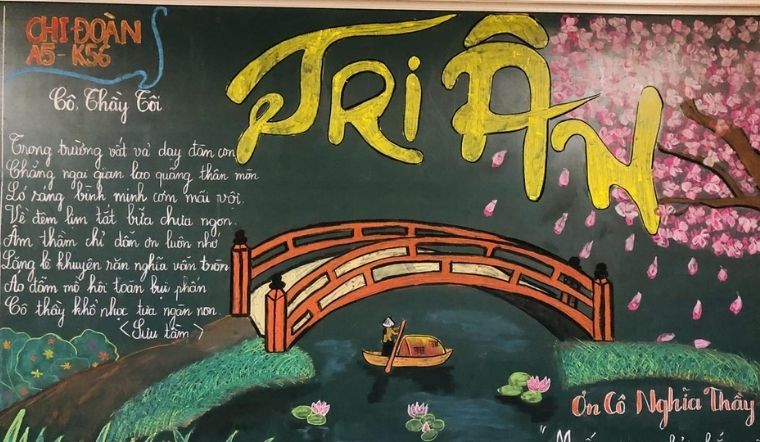 CHI ĐOÀN
A5 - K56
TRI ÂN
Cô, Thầy Tôi
Trong trường vất vả dạy đàn con
Chẳng ngại gian lao quãng thân mòn
Ló sạng bình minh cơm mấu vội
Về đêm lim tắt bữa chưa ngon.
Âm thầm chỉ dẫn ơn luôn nhớ
Lẳng lẽ khuyên răn nghĩa vẫn tròn
Áo đẫm mồ hôi toàn bụi phấn
Cô thầy khổ nhọc tựa ngàn non.
<Sưu tầm>
Ơn Cô Nghĩa Thầy